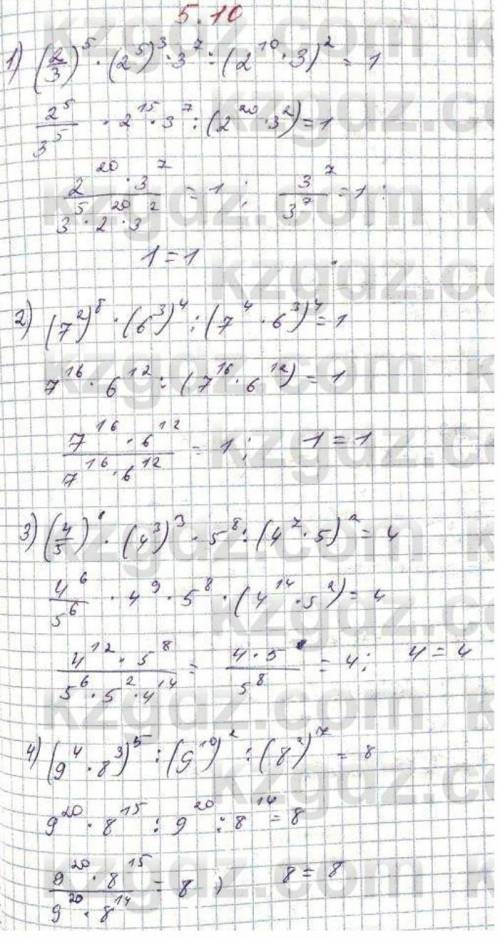 5.10
1) (2/3)^5 · (2^5)^3 · 3^7 : (2^10 · 3)^2 = 1
2^5/3^5 · 2^15 · 3^7 : (2^20 · 3^2) = 1
(2^20 · 3^7)/(3^5 · 2^20 · 3^2) = 1 ; 3^7/3^7 = 1 ;
1 = 1
2) (7^2)^8 · (6^3)^4 : (7^4 · 6^3)^4 = 1
7^16 · 6^12 : (7^16 · 6^12) = 1
(7^16 · 6^12)/(7^16 · 6^12) = 1 ; 1 = 1
3) (4/5)^6 · (4^3)^3 · 5^8 : (4^7 · 5)^2 = 4
4^6/5^6 · 4^9 · 5^8 · (4^14 · 5^2) = 4
(4^12 · 5^8)/(5^6 · 5^2 · 4^14) = (4 · 5^8)/5^8 = 4 ; 4 = 4
4) (9^4 · 8^3)^5 : (9^10)^2 : (8^2)^7 = 8
9^20 · 8^15 : 9^20 : 8^14 = 8
(9^20 · 8^15)/(9^20 · 8^14) = 8 ; 8 = 8
kzgdz.com